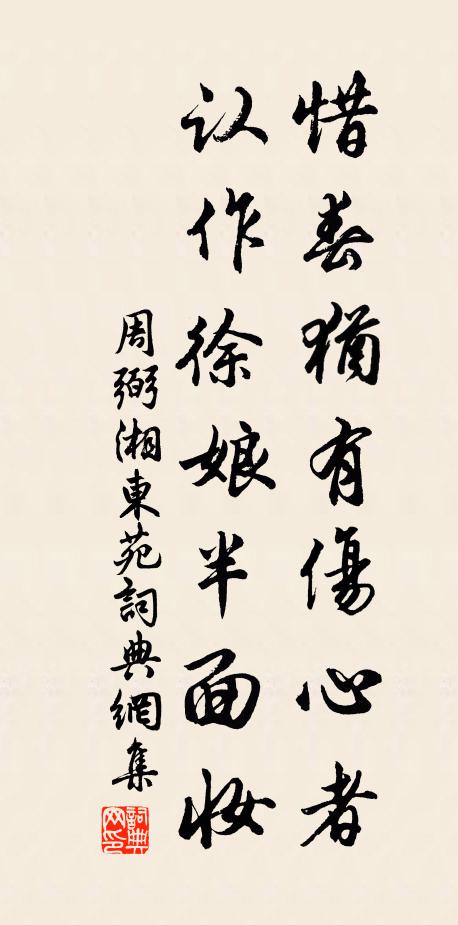 惜春猶有傷心者
认作徐娘半面妝
周弼湘東苑詞典網集
詞典网印